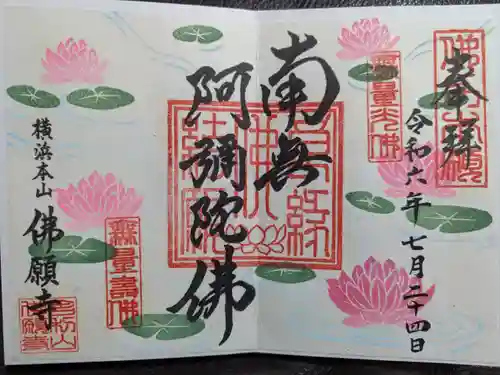 奉拝
令和六年七月二十四日
南無
阿彌陀佛
横浜本山
佛願寺
無量光佛
無量壽佛